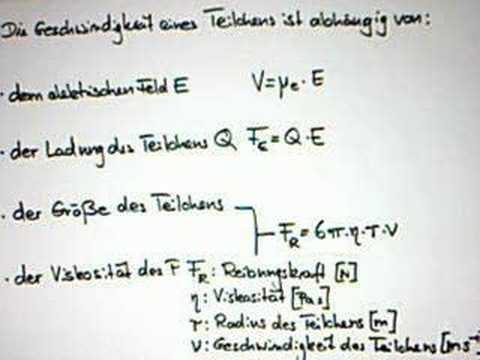 Die Geschwindigkeit eines Teilchens ist abhängig von:
· dem elektrischen Feld E V = μe · E
· der Ladung des Teilchens Q FE = Q · E
· der Größe des Teilchens
FR = 6π · η · r · v
· der Viskosität des F FR: Reibungskraft [N]
η: Viskosität [Pa s]
r: Radius des Teilchens [m]
v: Geschwindigkeit des Teilchens [ms⁻¹